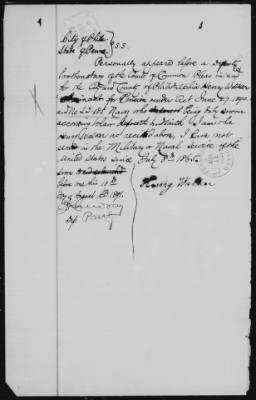 City of Phila
State of Penna } S.S.
Personally appeared before a Deputy
Prothonotary of the Court of Common Pleas in and
for the City and County of Philadelphia Henry Walker
claimant for Pension under Act June 27, 1890
being duly sworn
according to law I am the
Henry Walker as recited above, I have not
served in the Military or Naval Service of the
United States since July 8th 1865.
Sworn and subscribed
before me this 10th
day of August AD 1891.
Henry Walker
Dep Proty